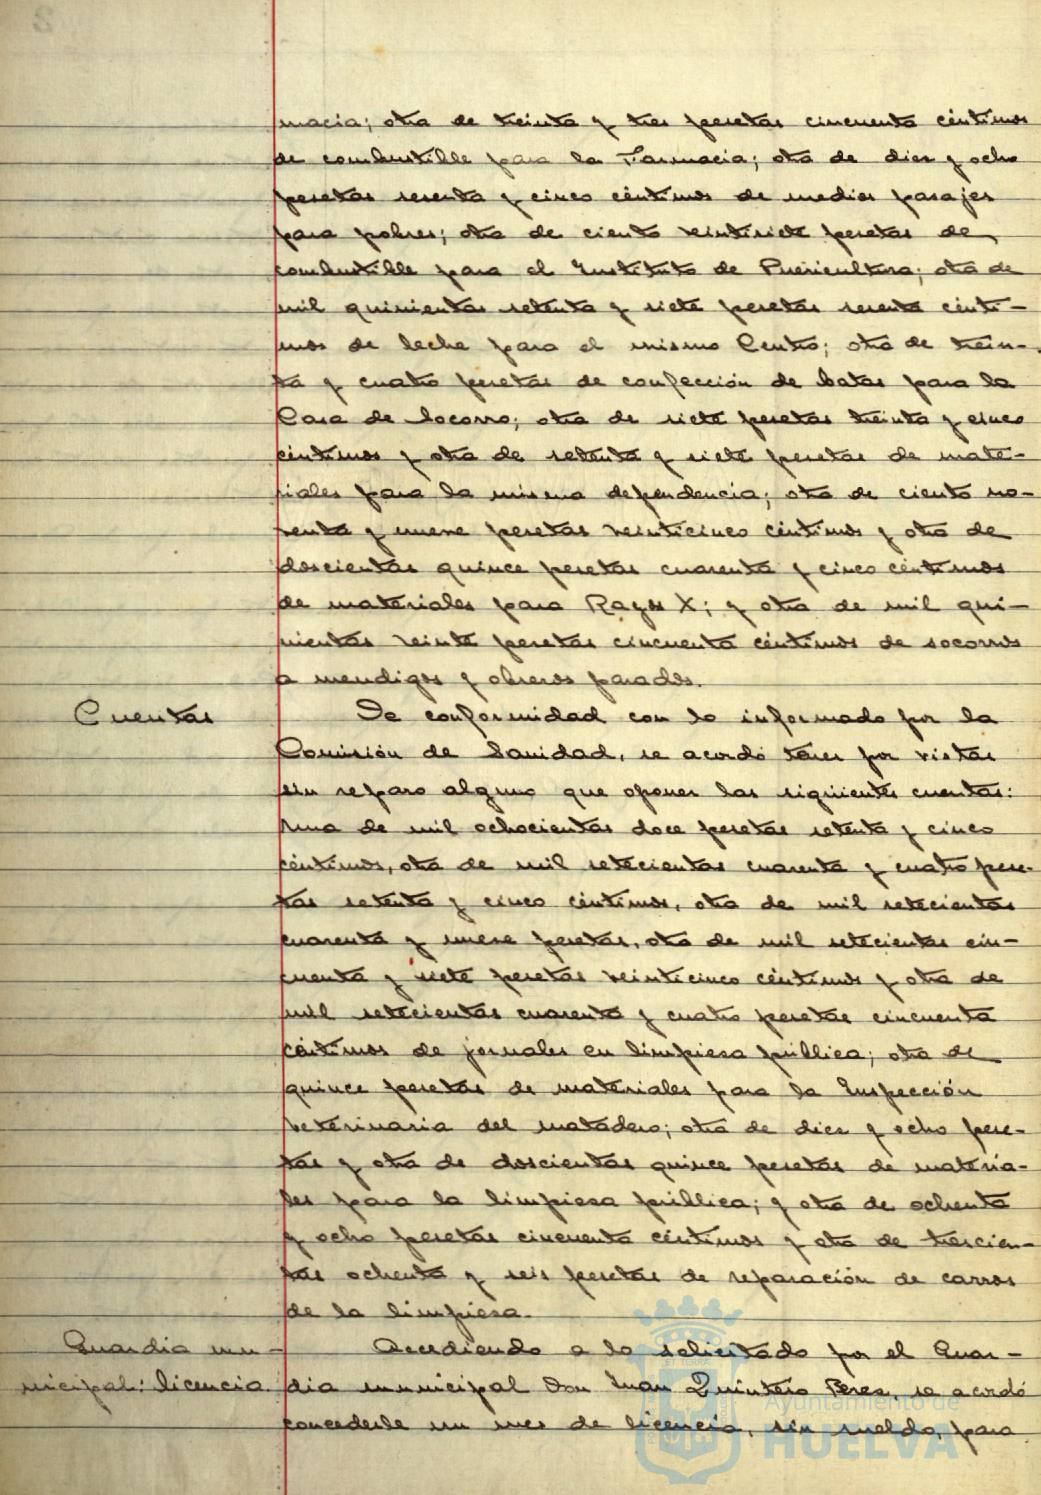 macia; otra de treinta y tres pesetas cincuenta céntimos
de combustible para la Farmacia; otra de diez y ocho
pesetas sesenta y cinco céntimos de medios pasajes
para pobres; otra de ciento veintisiete pesetas de
combustible para el Instituto de Puericultura; otra de
mil quinientas setenta y siete pesetas sesenta cénti-
mos de leche para el mismo Centro; otra de trein-
ta y cuatro pesetas de confección de batas para la
Casa de Socorro; otra de siete pesetas treinta y cinco
céntimos y otra de setenta y siete pesetas de mate-
riales para la misma dependencia; otra de ciento no-
venta y nueve pesetas veinticinco céntimos y otra de
doscientas quince pesetas cuarenta y cinco céntimos
de materiales para Rayos X; y otra de mil qui-
nientas veinte pesetas cincuenta céntimos de socorros
a mendigos y obreros parados.
Cuentas De conformidad con lo informado por la
Comisión de Sanidad, se acordó tener por vistas
sin reparo alguno que oponer las siguientes cuentas:
una de mil ochocientas doce pesetas setenta y cinco
céntimos, otra de mil setecientas cuarenta y cuatro pese-
tas setenta y cinco céntimos, otra de mil setecientas
cuarenta y nueve pesetas, otra de mil setecientas cin-
cuenta y siete pesetas veinticinco céntimos y otra de
mil setecientas cuarenta y cuatro pesetas cincuenta
céntimos de jornales en limpieza pública; otra de
quince pesetas de materiales para la Inspección
veterinaria del matadero; otra de diez y ocho pese-
tas y otra de doscientas quince pesetas de materia-
les para la limpieza pública; y otra de ochenta
y ocho pesetas cincuenta céntimos y otra de trescien-
tas ochenta y seis pesetas de reparación de carros
de la limpieza.
Guardia mu- Accediendo a lo solicitado por el Guar-
nicipal: licencia dia municipal Don Juan Quintero Perez, se acordó
concederle un mes de licencia, sin sueldo, para
Ayuntamiento de
HUELVA